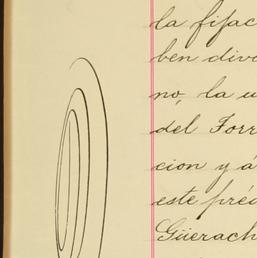 la fijac
ben divi
no, la u
del Forr
cion y á
este pré
Güerach